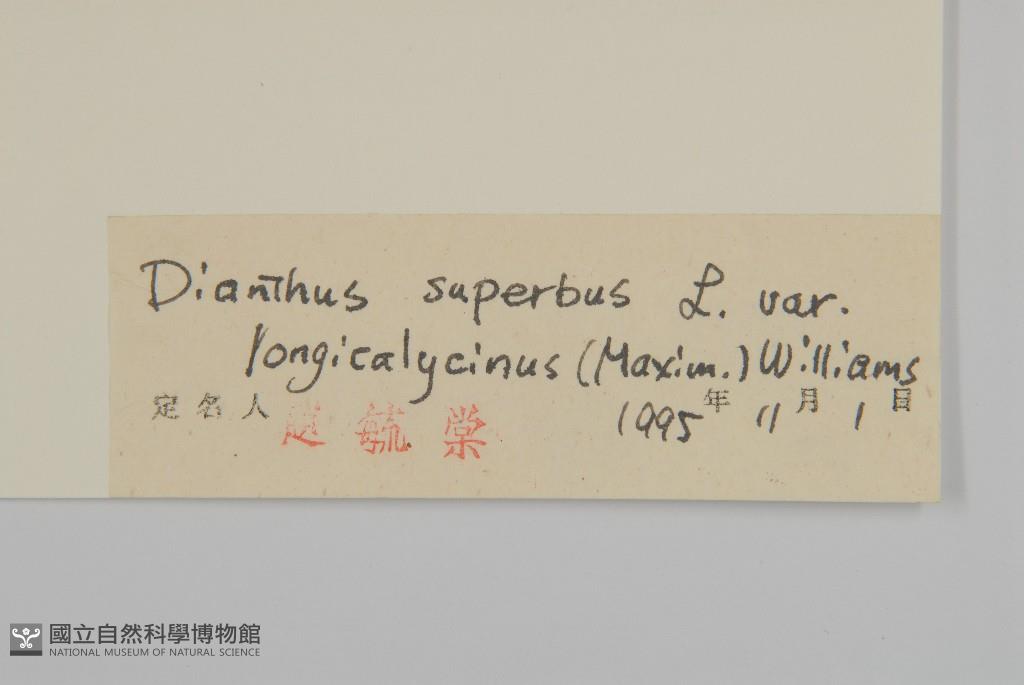 Dianthus superbus L. var.
longicalycinus (Maxim.) Williams
定名人 趙毓棠 1995年11月1日
國立自然科學博物館
NATIONAL MUSEUM OF NATURAL SCIENCE